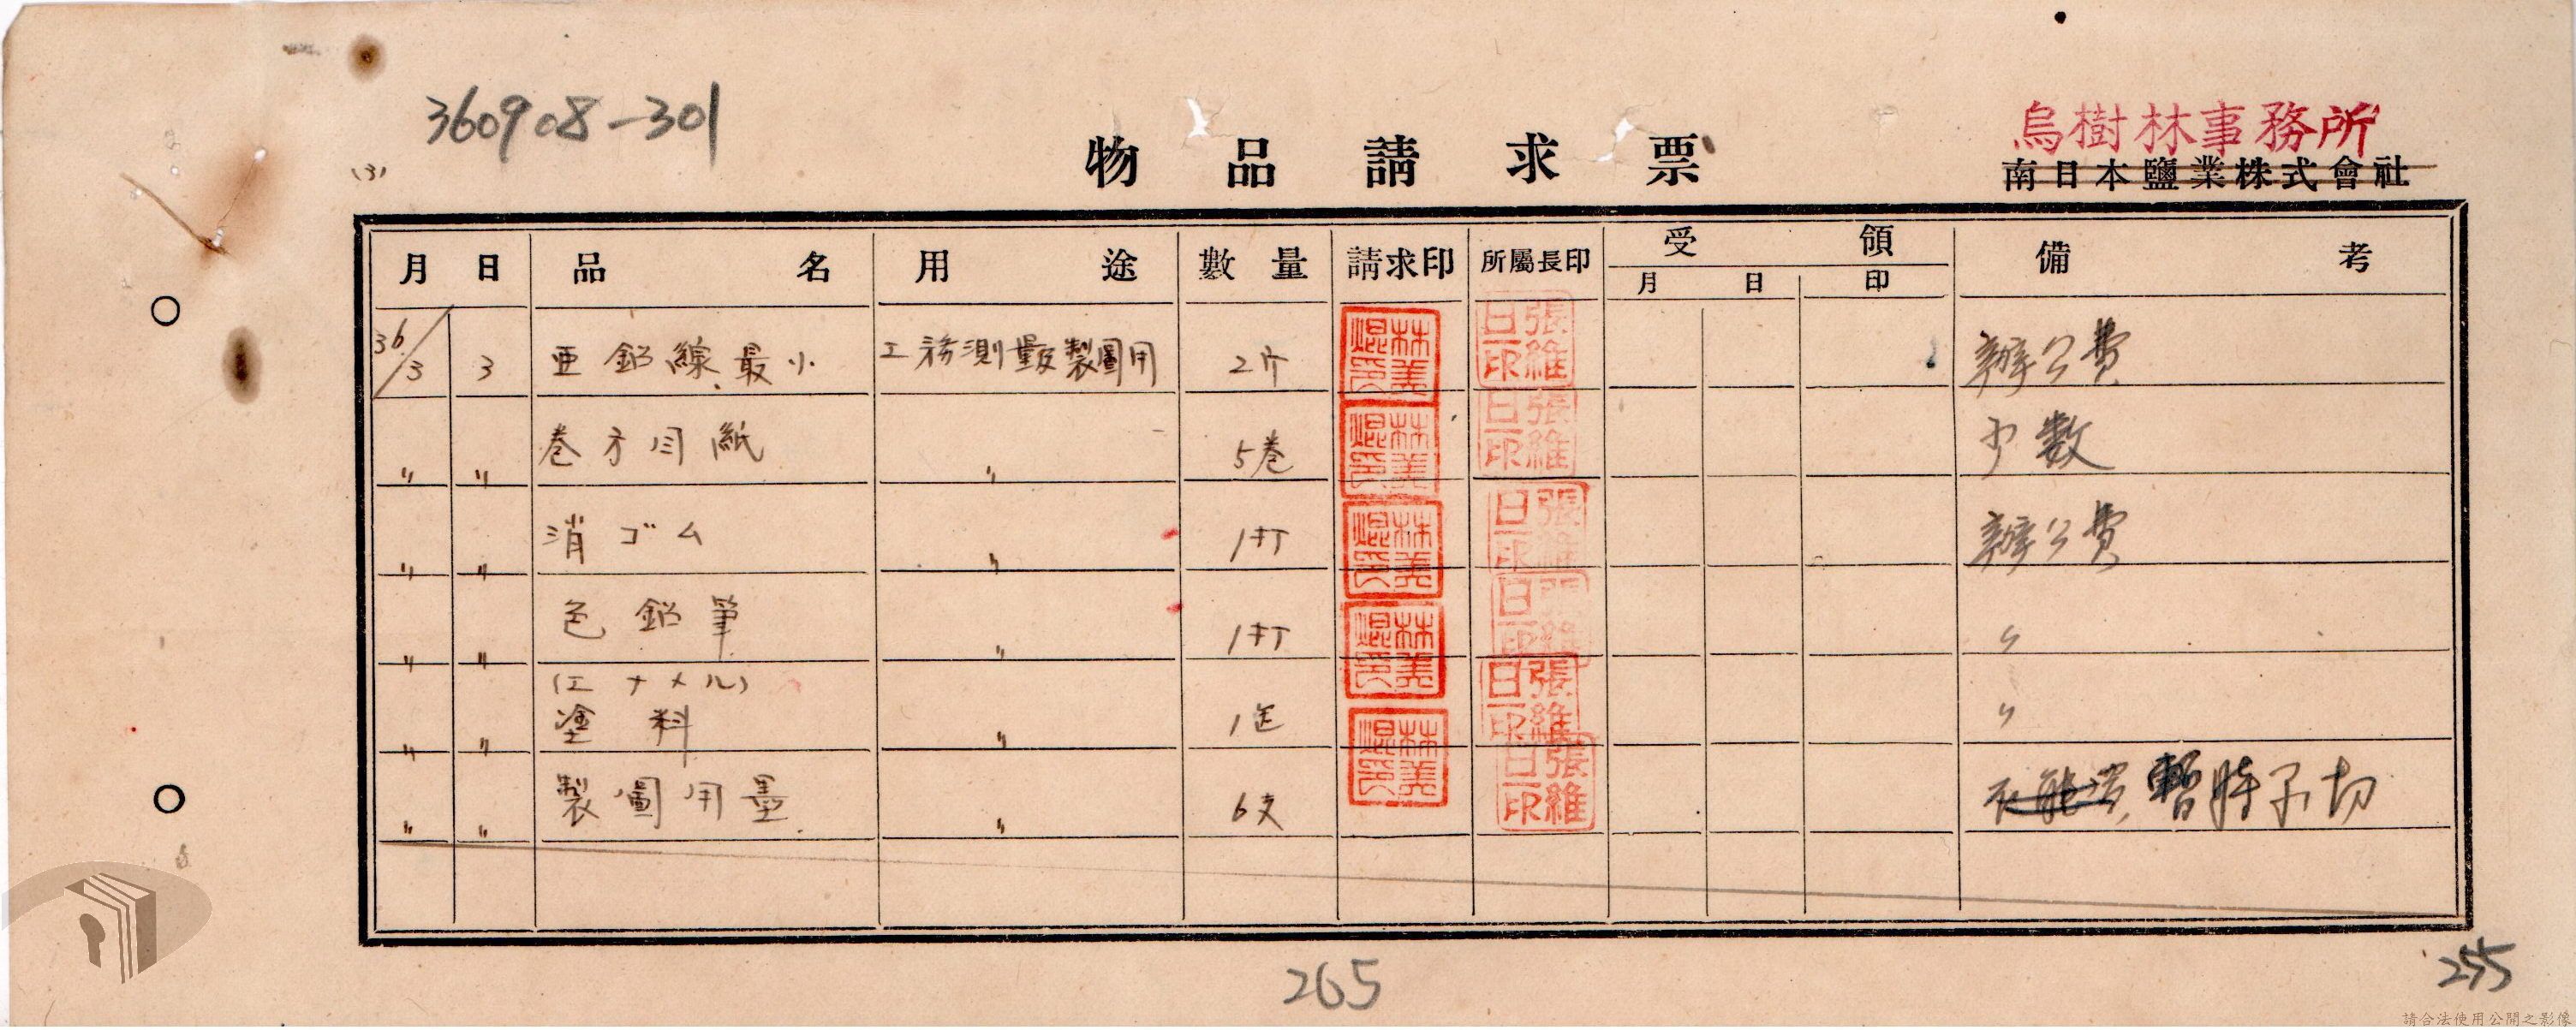 360908-301
(3)
物品請求票
烏樹林事務所
南日本鹽業株式會社
月 日 品名 用途 數量 請求印 所屬長印 受領 備考
月 日 印
36/3 3 亜鉛線最小 工務測量及製圖用 2斤 張維日印 辦公費
〃 〃 巻方目紙 〃 5巻 張維日印 少數
〃 〃 消ゴム 〃 1打 張維日印 辦公費
〃 〃 色鉛筆 〃 1打 張維日印 〃
(エナメル)
〃 〃 塗料 〃 1缶 張維日印 〃
〃 〃 製圖用墨 〃 6支 張維日印 暫時不切
265
255
請合法使用公開之影像